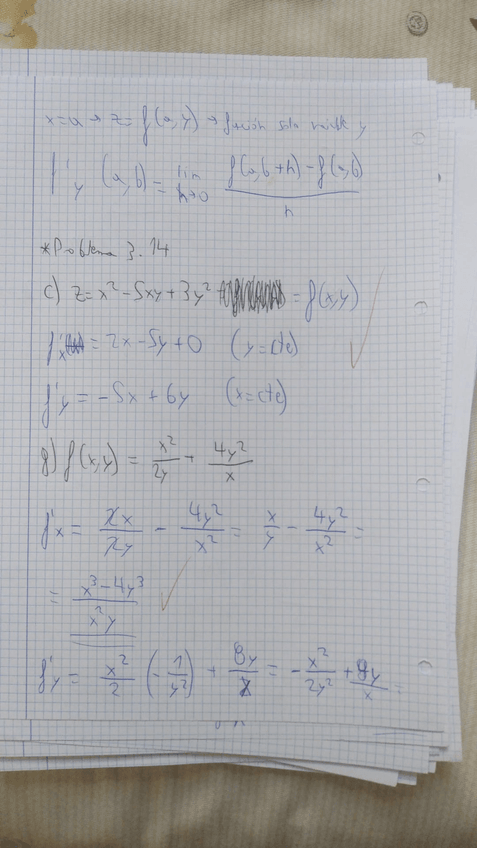 x=a → z= f(a,y) → función solo variable y
f'y (a,b) = lim h→0 (f(a,b+h) - f(a,b))/h
*Problema 3.14
c) z= x² - 5xy + 3y² = f(x,y)
f'x = 2x - 5y + 0 (y=cte)
f'y = -5x + 6y (x=cte)
g) f(x,y) = x²/2y + 4y²/x
f'x = 2x/2y - 4y²/x² = x/y - 4y²/x² =
= (x³-4y³)/(x²y)
f'y = x²/2 (-1/y²) + 8y/x = -x²/2y² + 8y/x =